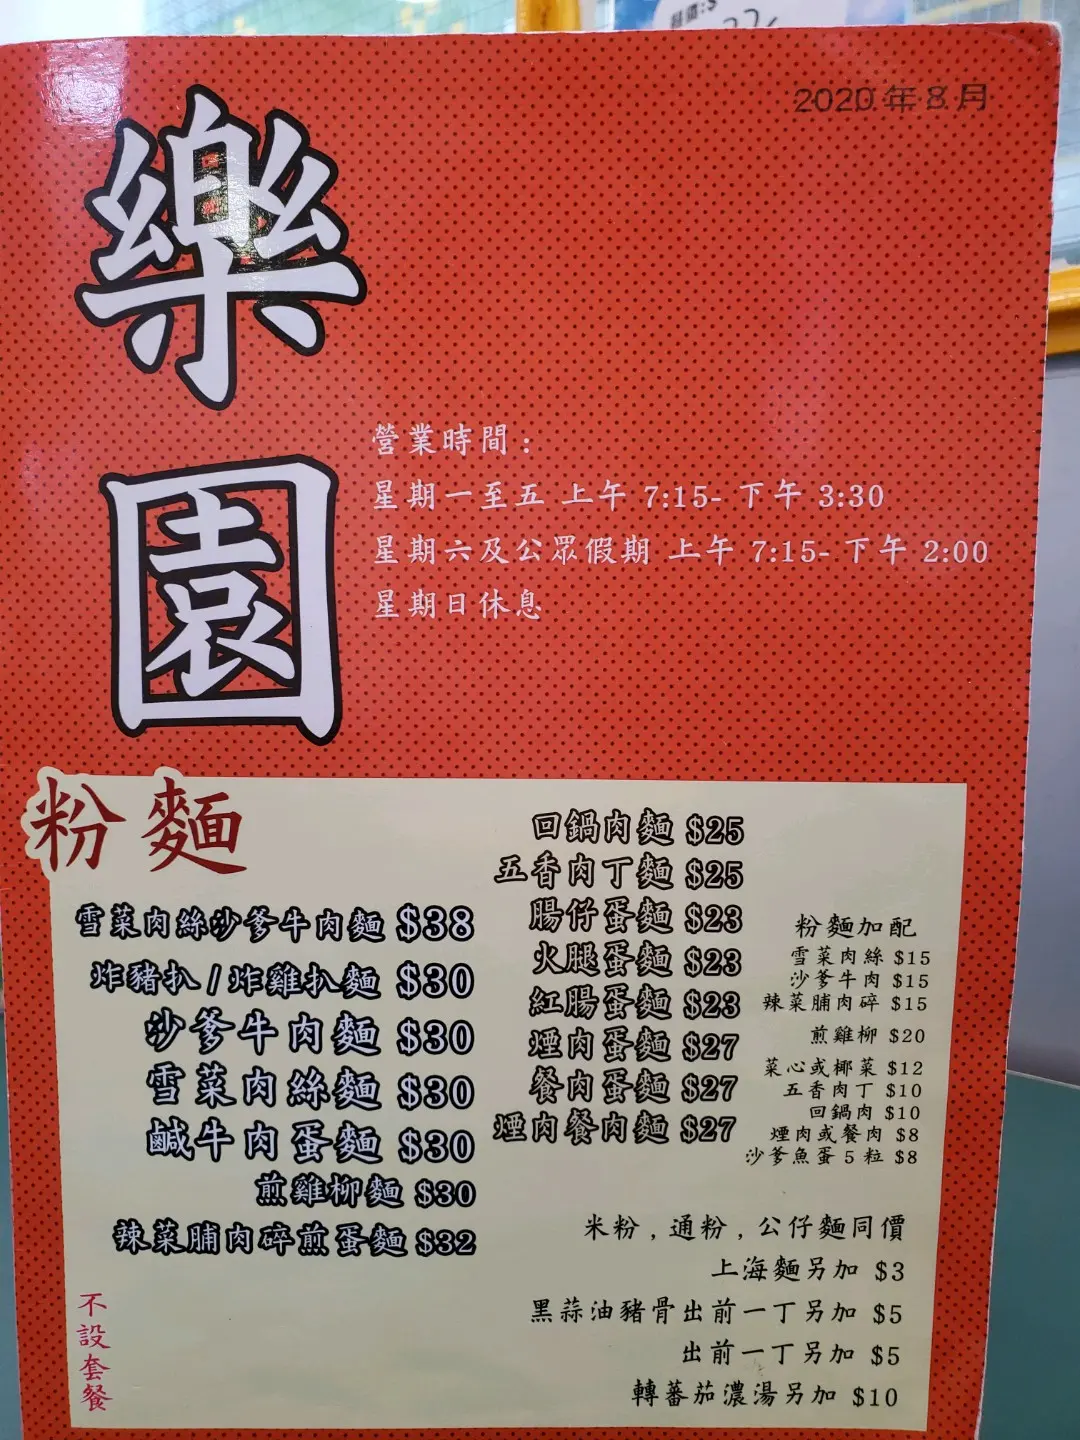 2020年8月
樂園
營業時間：
星期一至五 上午 7:15- 下午 3:30
星期六及公眾假期 上午 7:15- 下午 2:00
星期日休息
粉麵
雪菜肉絲沙爹牛肉麵 $38
炸豬扒/炸雞扒麵 $30
沙爹牛肉麵 $30
雪菜肉絲麵 $30
鹹牛肉蛋麵 $30
煎雞柳麵 $30
辣菜脯肉碎煎蛋麵 $32
不設套餐
回鍋肉麵 $25
五香肉丁麵 $25
腸仔蛋麵 $23
火腿蛋麵 $23
紅腸蛋麵 $23
煙肉蛋麵 $27
餐肉蛋麵 $27
煙肉餐肉麵 $27
粉麵加配
雪菜肉絲 $15
沙爹牛肉 $15
辣菜脯肉碎 $15
煎雞柳 $20
菜心或椰菜 $12
五香肉丁 $10
回鍋肉 $10
煙肉或餐肉 $8
沙爹魚蛋5粒 $8
米粉，通粉，公仔麵同價
上海麵另加 $3
黑蒜油豬骨出前一丁另加 $5
出前一丁另加 $5
轉蕃茄濃湯另加 $10